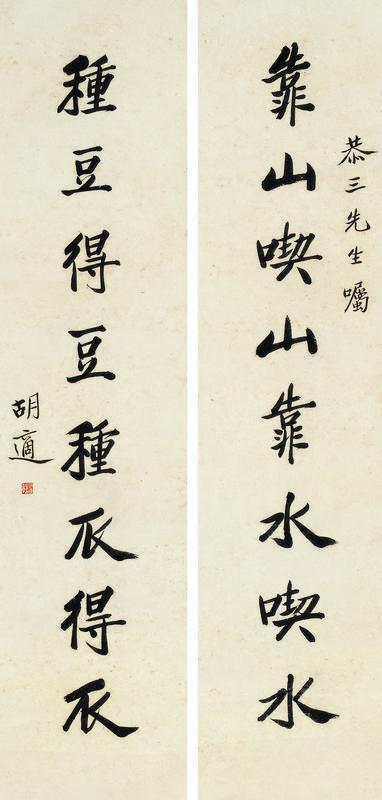 恭三先生囑
靠山喫山靠水喫水
種豆得豆種瓜得瓜
胡適